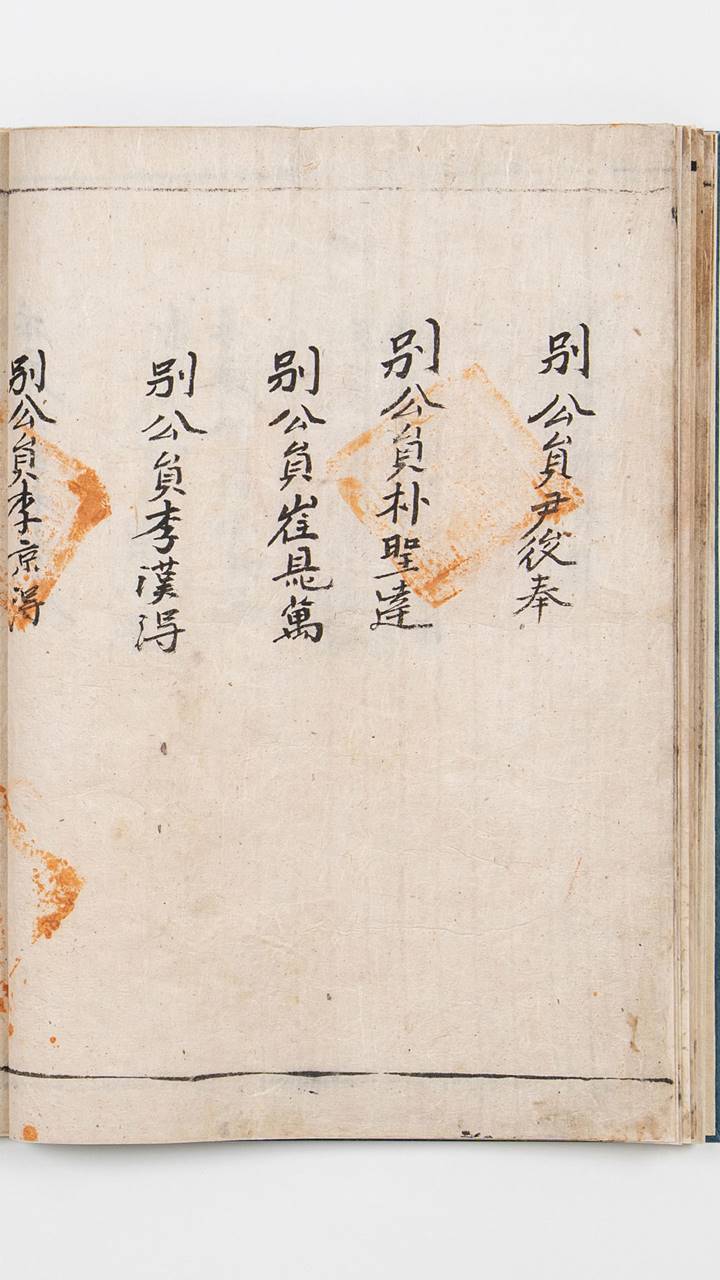 別公員尹俊奉
別公員朴聖達
別公員崔昆萬
別公員李漢淂
別公員李京淂